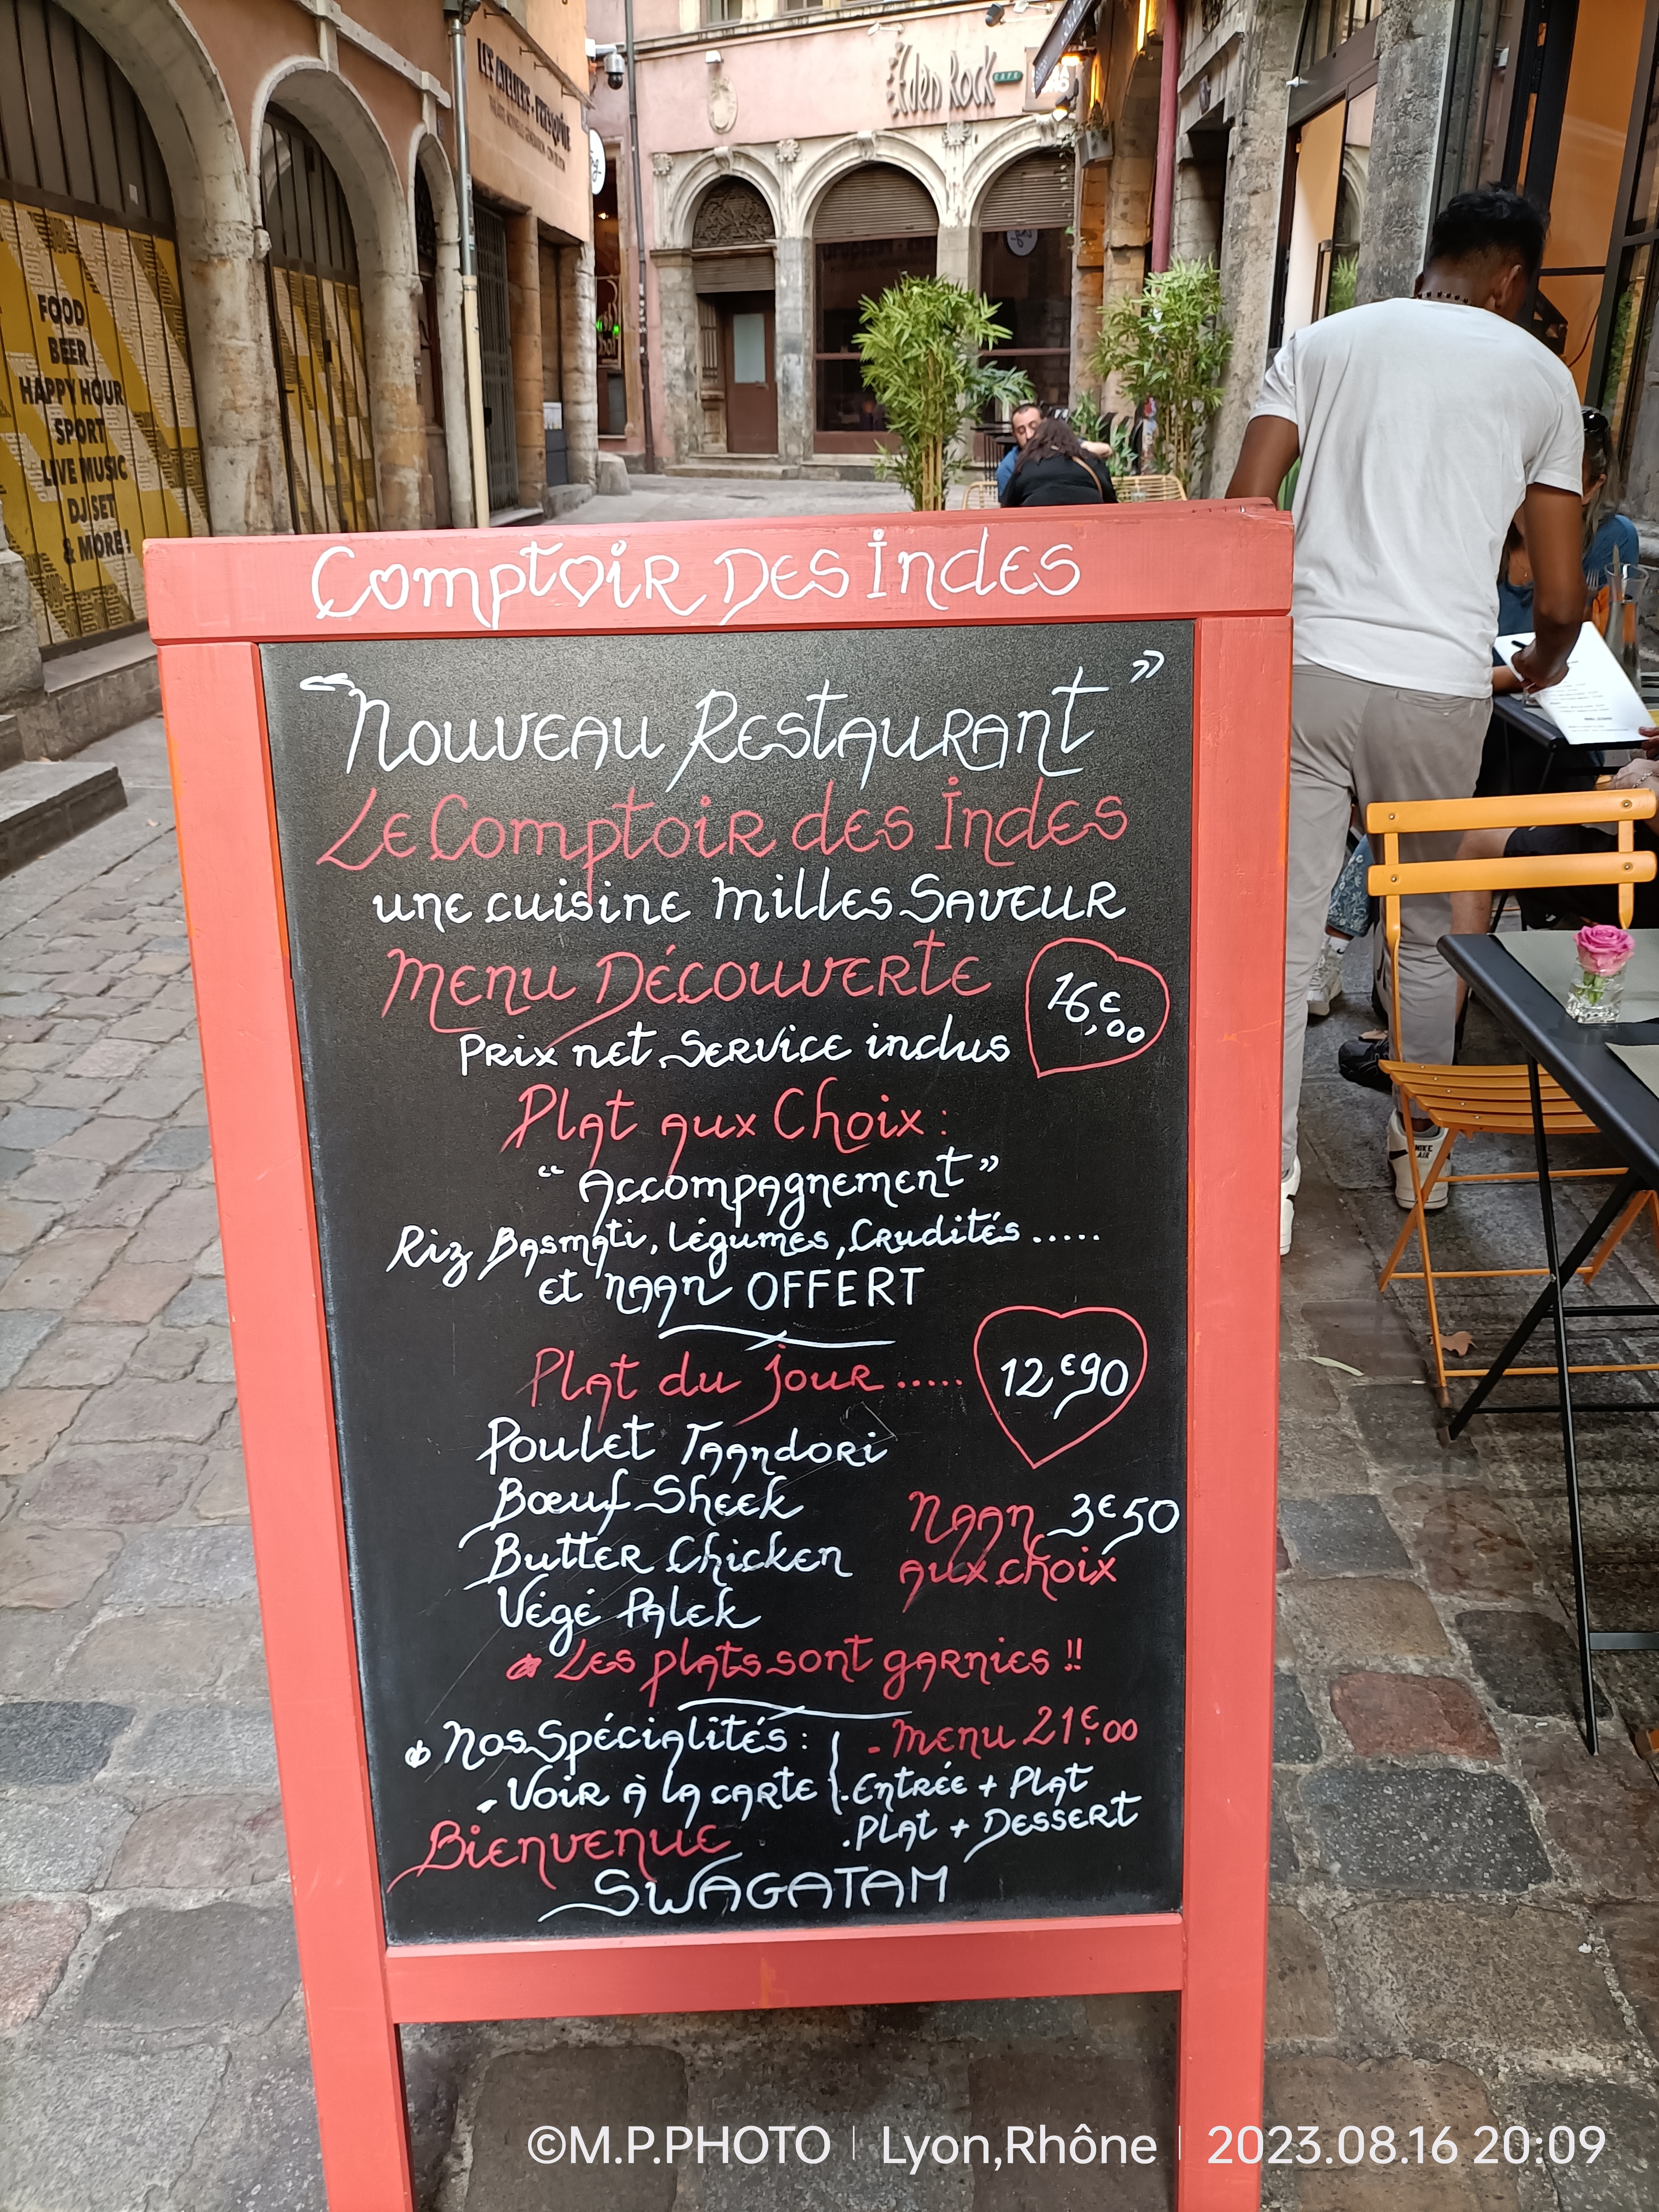 LES ATELIERS-FRESQUE
Eden Rock
CAFE
FOOD
BEER
HAPPY HOUR
SPORT
LIVE MUSIC
DJ SET
& MORE!
Comptoir Des Indes
"Nouveau Restaurant"
Le Comptoir des Indes
une cuisine milles Saveur
Menu Découverte 16€,00
Prix net, Service inclus
Plat aux Choix :
"Accompagnement"
Riz Basmati, légumes, Crudités.....
et naan OFFERT
Plat du jour ..... 12€90
Poulet Taandori
Bœuf Sheek
Naan 3€50
Butter Chicken
aux choix
Végé Palek
Les plats sont garnies !!
Nos Spécialités : - Menu 21€,00
- Voir à la carte . Entrée + Plat
. Plat + Dessert
Bienvenue
SWAGATAM
NIKE
AIR
©M.P.PHOTO | Lyon,Rhône | 2023.08.16 20:09